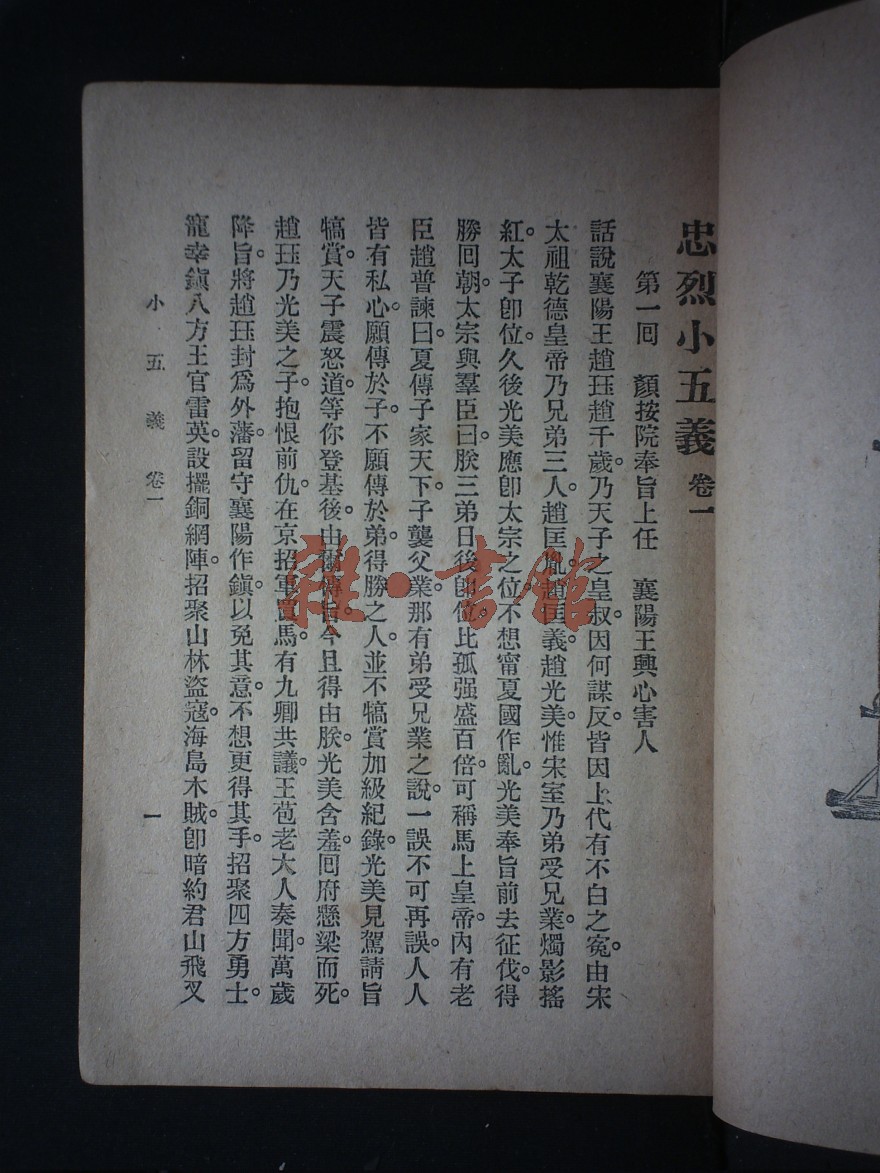 忠烈小五義 卷一
第一回 顏按院奉旨上任 襄陽王興心害人
話說襄陽王趙珏趙千歲。乃天子之皇叔。因何謀反。皆因上代有不白之冤。由宋
太祖乾德皇帝乃兄弟三人。趙匡胤。趙匡義。趙光美。惟宋室乃弟受兄業。燭影搖
紅。太子卽位。久後光美應卽太宗之位。不想甯夏國作亂。光美奉旨前去征伐。得
勝回朝。太宗與羣臣曰。朕三弟日後卽位。比孤强盛百倍。可稱馬上皇帝。內有老
臣趙普諫曰。夏傳子家天下。子襲父業。那有弟受兄業之說。一誤不可再誤。人人
皆有私心。願傳於子。不願傳於弟。得勝之人。並不犒賞加級紀錄。光美見駕請旨
犒賞。天子震怒道。等你登基後。由爾傳旨。今且得由朕。光美含羞回府懸梁而死。
趙珏乃光美之子。抱恨前仇。在京招軍買馬。有九卿共議。王苞老大人奏聞。萬歲
降旨。將趙珏封爲外藩。留守襄陽作鎭。以免其意。不想更得其手。招聚四方勇士。
寵幸鎭八方王官雷英。設擺銅網陣。招聚山林盜寇。海島木賊。卽暗約君山飛叉
小五義 卷一
一
雜·書館